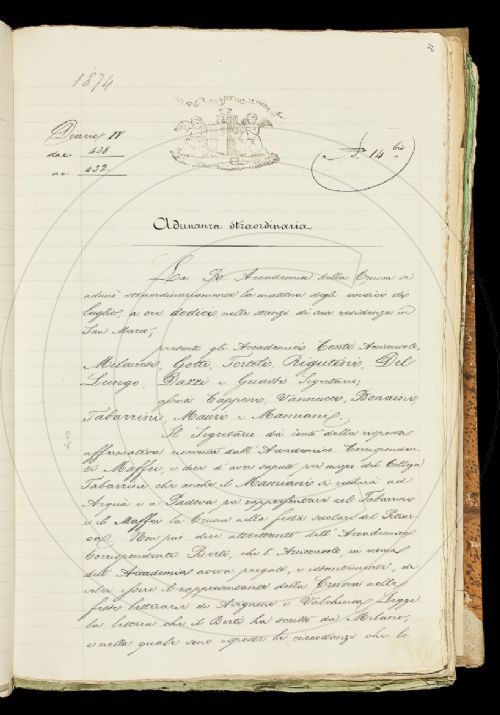 1874
Diario IV
dac 428
ac 432
N. 14 bis
Adunanza straordinaria
La R. Accademia della Crusca si
adunò straordinariamente la mattina degli undici di
luglio, a ore dodici nelle stanze di sua residenza in
San Marco;
presenti gli Accademici Conti Arciconsolo,
Milanesi, Gotti, Tortoli, Rigutini, Del
Lungo, Dazzi e Guasti Segretario;
assenti Capponi, Vannucci, Bonaini
Tabarrini, Mauri e Mamiani,
Il Segretario dà conto della risposta
affermativa ricevuta dall' Accademico Corrisponden-
te Maffei, e dice d'aver saputo per mezzo del Collega
Tabarrini che anche il Mamiani si recherà ad
Arquà e a Padova per rappresentare col Tabarrini
e il Maffei la Crusca nelle feste secolari del Petrar-
ca. Non può dire altrettanto dell' Accademico
Corrispondente Berti, che l' Arciconsolo, in nome
dell' Accademia aveva pregato, e istantemente, di
voler essere il rappresentante della Crusca nelle
feste letterarie di Avignone e Valchiusa. Legge
la lettera che il Berti ha scritto da Milano,
e nella quale sono esposte le circostanze che lo